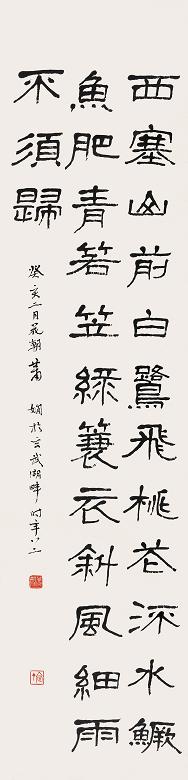 西塞山前白鷺飛桃花流水鱖
魚肥青箬笠綠簑衣斜風細雨
不須歸
癸亥二月花朝蕭嫻於玄武湖畔時年八二